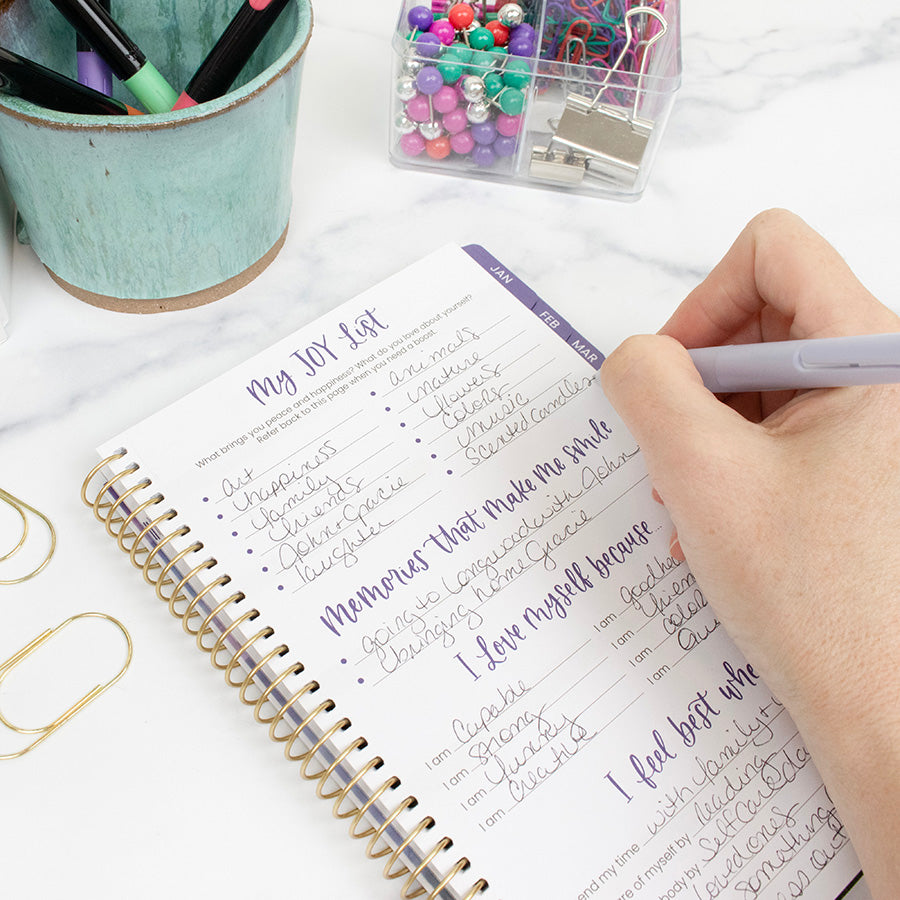 JAN
FEB
MAR
My JOY List
What brings you peace and happiness? What do you love about yourself?
Refer back to this page when you need a boost.
art
happiness
family
friends
John + Gracie
laughter
animals
nature
flowers
colors
music
scented candles
Memories that make me smile
going to Longwood with John
bringing home Gracie
I love myself because...
I am Capable
I am Strong
I am funny
I am creative
I am
I am
I am
I am
I feel best whe
end my time with family +
are of myself by reading
body by selfcare da
loved ones
something